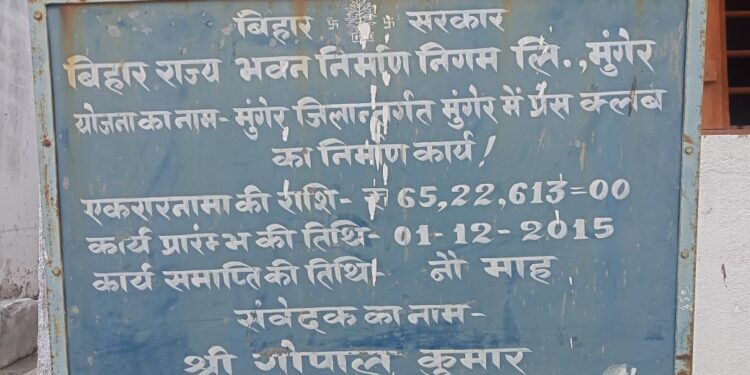 बिहार सरकार
बिहार राज्य भवन निर्माण निगम लि., मुंगेर
योजना का नाम- मुंगेर जिलान्तर्गत मुंगेर में प्रेस क्लब
का निर्माण कार्य!
एकरारनामा की राशि- रु 65,22,613=00
कार्य प्रारंम्भ की तिथि- 01-12-2015
कार्य समाप्ति की तिथि- नौ माह
संवेदक का नाम-
श्री गोपाल कुमार